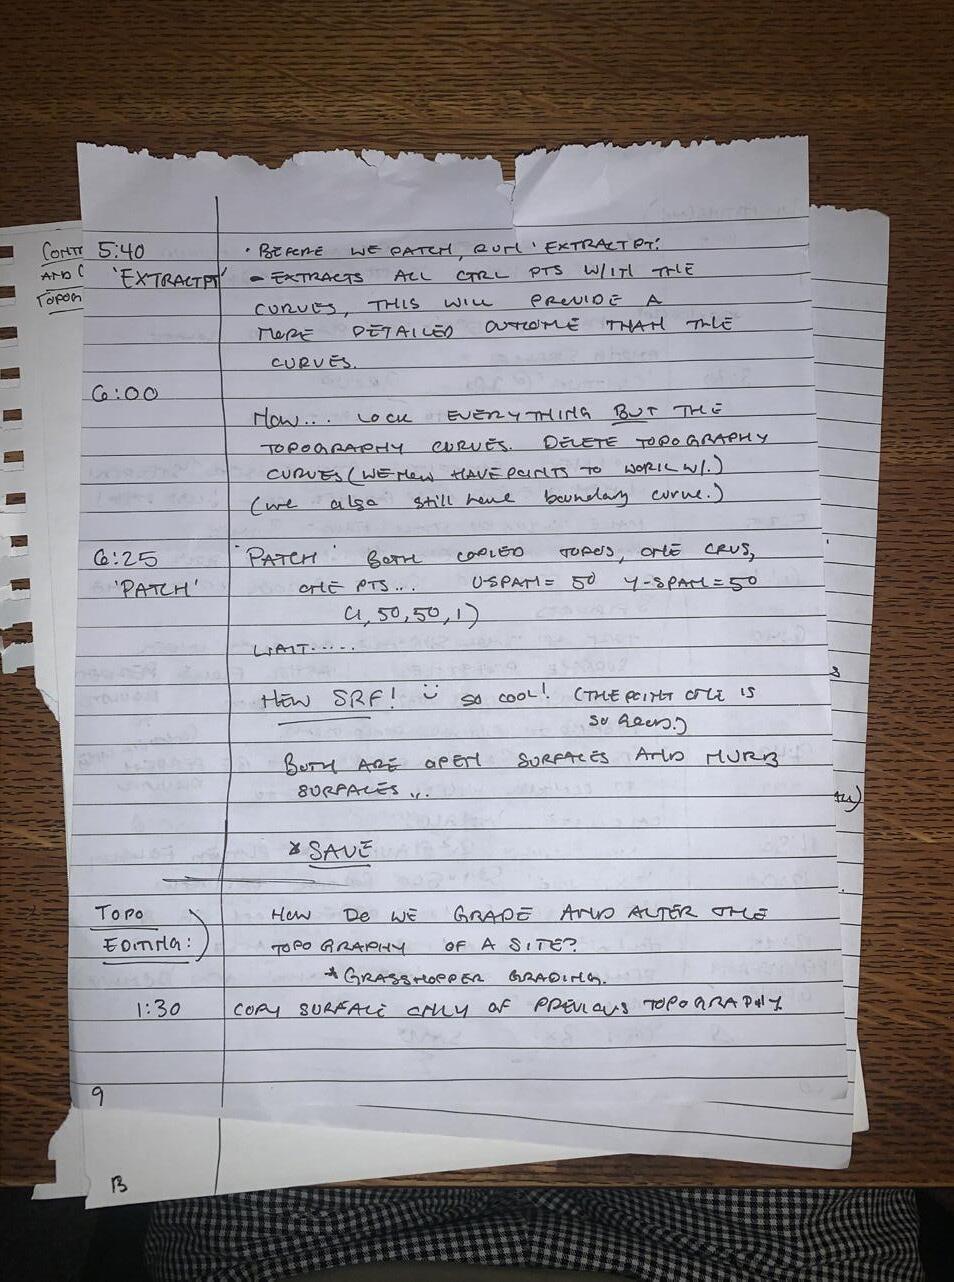 CONT
AND C
TOPOG
5:40 · BEFORE WE PATCH, RUN 'EXTRACTPT:
'EXTRACTPT' - EXTRACTS ALL CTRL PTS W/ITH THE
CURVES, THIS WILL PROVIDE A
MORE DETAILED OUTCOME THAN THE
CURVES.
6:00
NOW... LOCK EVERYTHING BUT THE
TOPOGRAPHY CURVES. DELETE TOPOGRAPHY
CURVES (WE NOW HAVE POINTS TO WORK W/.)
(we also still have boundary curve.)
6:25 'PATCH' BOTH COPIED TOPOS, ONE CRVS,
'PATCH' ONE PTS... U-SPAN = 50 Y-SPAN = 50
(1, 50, 50, 1)
WAIT.....
NEW SRF! :) SO COOL! (THE POINT ONE IS
SO )
BOTH ARE OPEN SURFACES AND NURB
SURFACES...
* SAVE
TOPO HOW DO WE GRADE AND ALTER THE
EDITING: TOPOGRAPHY OF A SITE?
* GRASSHOPPER GRADING.
1:30 COPY SURFACE ONLY OF PREVIOUS TOPOGRAPHY.
9
B